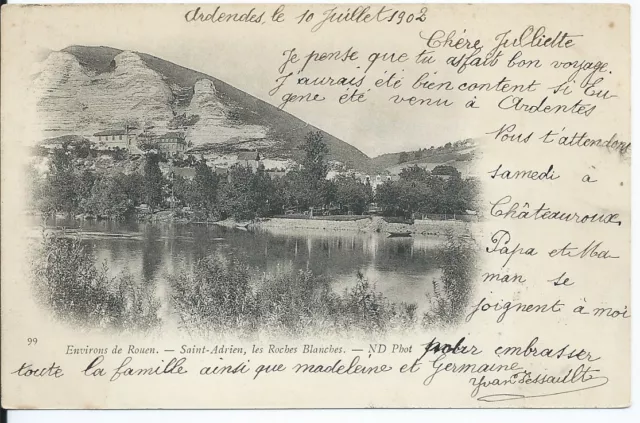 Ardendes, le 10 Juillet 1902
Chère Julliette
Je pense que tu a fait bon voyage.
J'aurais été bien content si Eu-
gene été venu à Ardentes
Nous t'attendons
samedi à
Châteauroux
Papa et Ma-
man se
joignent à moi
pour embrasser
toute la famille ainsi que madeleine et Germaine
Yvan
99
Environs de Rouen. — Saint-Adrien, les Roches Blanches. — ND Phot